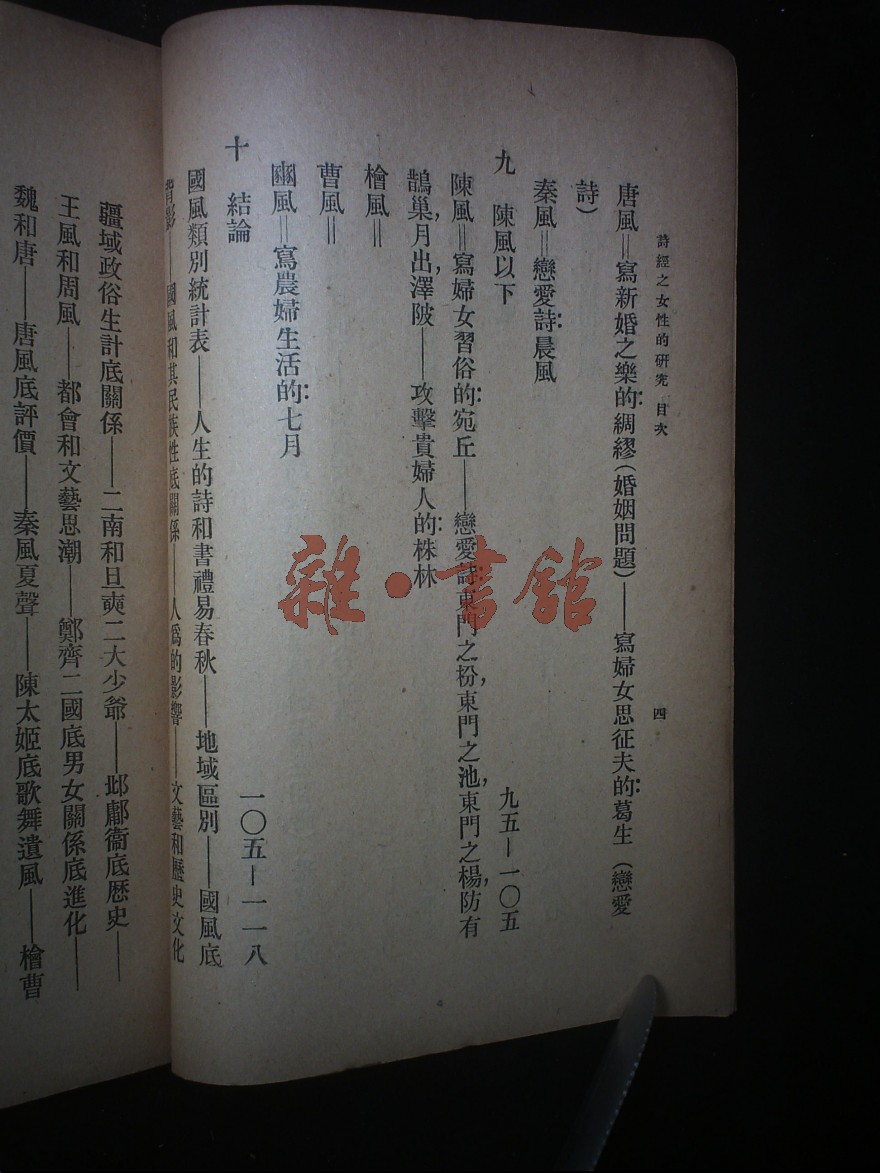 詩經之女性的研究 目次 四
唐風＝寫新婚之樂的：綢繆（婚姻問題）——寫婦女思征夫的：葛生（戀愛
詩）
秦風＝戀愛詩：晨風
九 陳風以下 九五—一〇五
陳風＝寫婦女習俗的：宛丘——戀愛詩：東門之枌，東門之池，東門之楊，防有
鵲巢，月出，澤陂——攻擊貴婦人的：株林
檜風＝
曹風＝
豳風＝寫農婦生活的：七月
十 結論 一〇五—一一八
國風類別統計表——人生的詩和書禮易春秋——地域區別——國風底
背影——國風和其民族性底關係——人爲的影響——文藝和歷史文化
疆域政俗生計底關係——二南和旦奭二大少爺——邶鄘衞底歷史——
王風和周風——都會和文藝思潮——鄭齊二國底男女關係底進化——
魏和唐——唐風底評價——秦風夏聲——陳太姬底歌舞遺風——檜曹
雜·書館